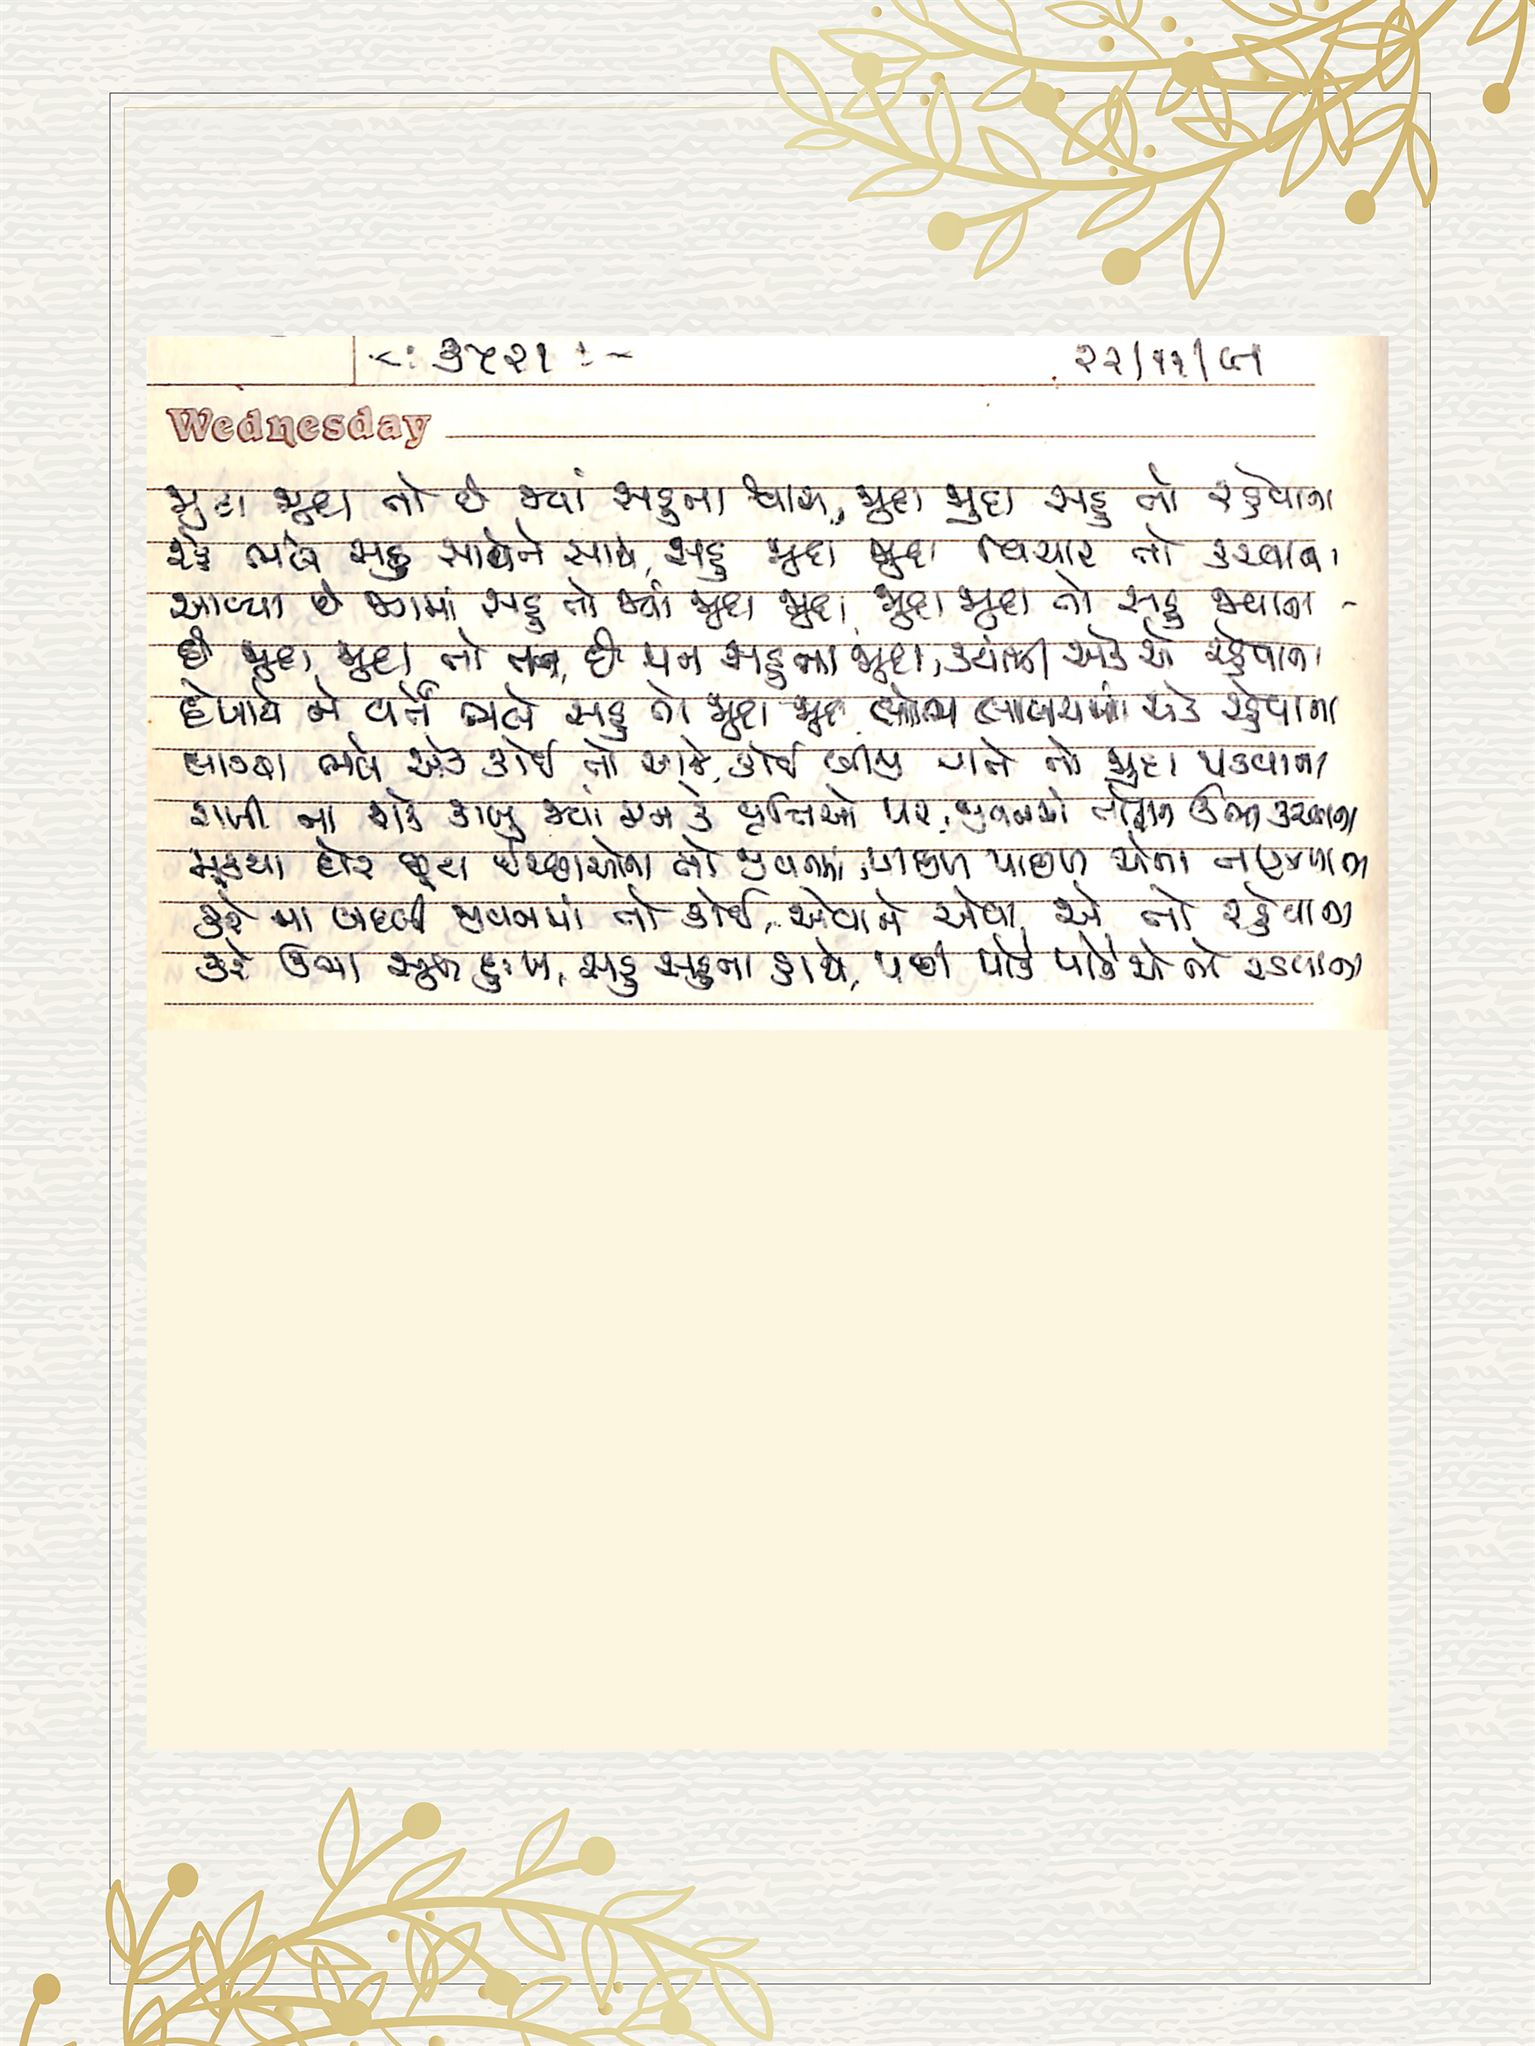 -<: ૩૫૨૧ :-
૨૨/૧૧/૯૧
Wednesday
જુદા જુદા તો છે જ્યાં સહુના શ્વાસ, જુદા જુદા સહુ તો રહેવાના
રહે ભલે સહુ સાથેને સાથ, સહુ જુદા જુદા વિચાર તો કરવાના
આવ્યા છે જગમાં સહુ તો જ્યાં જુદા જુદા, જુદા જુદા તો સહુ જવાના -
છે જુદા જુદા તો તન, છે મન સહુના જુદા, ક્યાંથી એક એ રહેવાના
દેખાયે ને વર્તે ભલે સહુ તો જુદા જુદા લોભ લાલચમાં એક રહેવાના
લાગ્યા ભલે એક કોઈ તો વાતે, કોઈ બીજી વાતે તો જુદા પડવાના
રાખી ના શકે કાબુ જ્યાં મન કે વૃત્તિઓ પર, જીવનમાં તોફાન ઉભા કરવાના
મૂક્યા દોર છૂટા ઈચ્છાઓના તો જીવનમાં, પાછળ પાછળ એના
કરે ના બદલી જીવનમાં તો કોઈ, એવાને એવા એ તો રહેવાના
કરે ઉભા સુખ દુઃખ, સહુ સહુના હાથે, પછી પોકે પોકે એ તો રડવાના